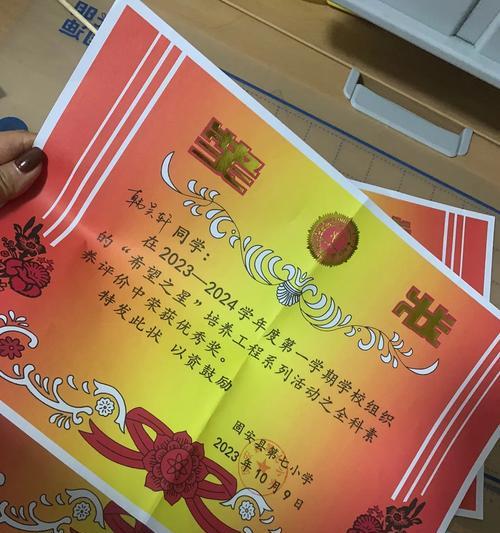 奖 状
韩昊轩 同学：
在2023—2024学年度第一学期学校组织
的“希望之星”培养工程系列活动之全科素
养评价中荣获优秀奖。
特发此状 以资鼓励
固安县第七小学
2023年10月9日